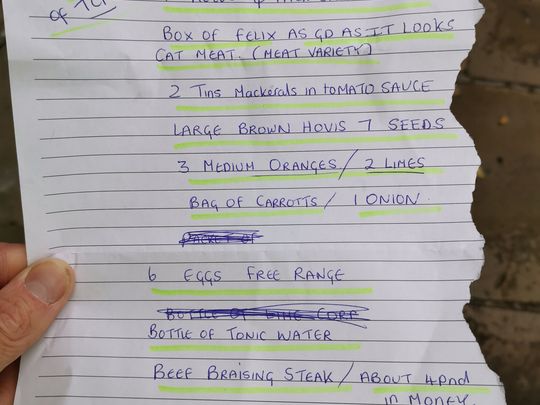 of TCP
BOX OF FELIX AS GD AS IT LOOKS
CAT MEAT. (MEAT VARIETY)
2 Tins Mackerals in tOMATO SAUCE
LARGE BROWN HOVIS 7 SEEDS
3 MEDIUM ORANGES / 2 LIMES
BAG OF CARROTTS / 1 ONION.
6 EGGS FREE RANGE
BOTTLE OF
BOTTLE OF TONIC WATER
BEEF BRAISING STEAK / ABOUT 4PND
in MONEY